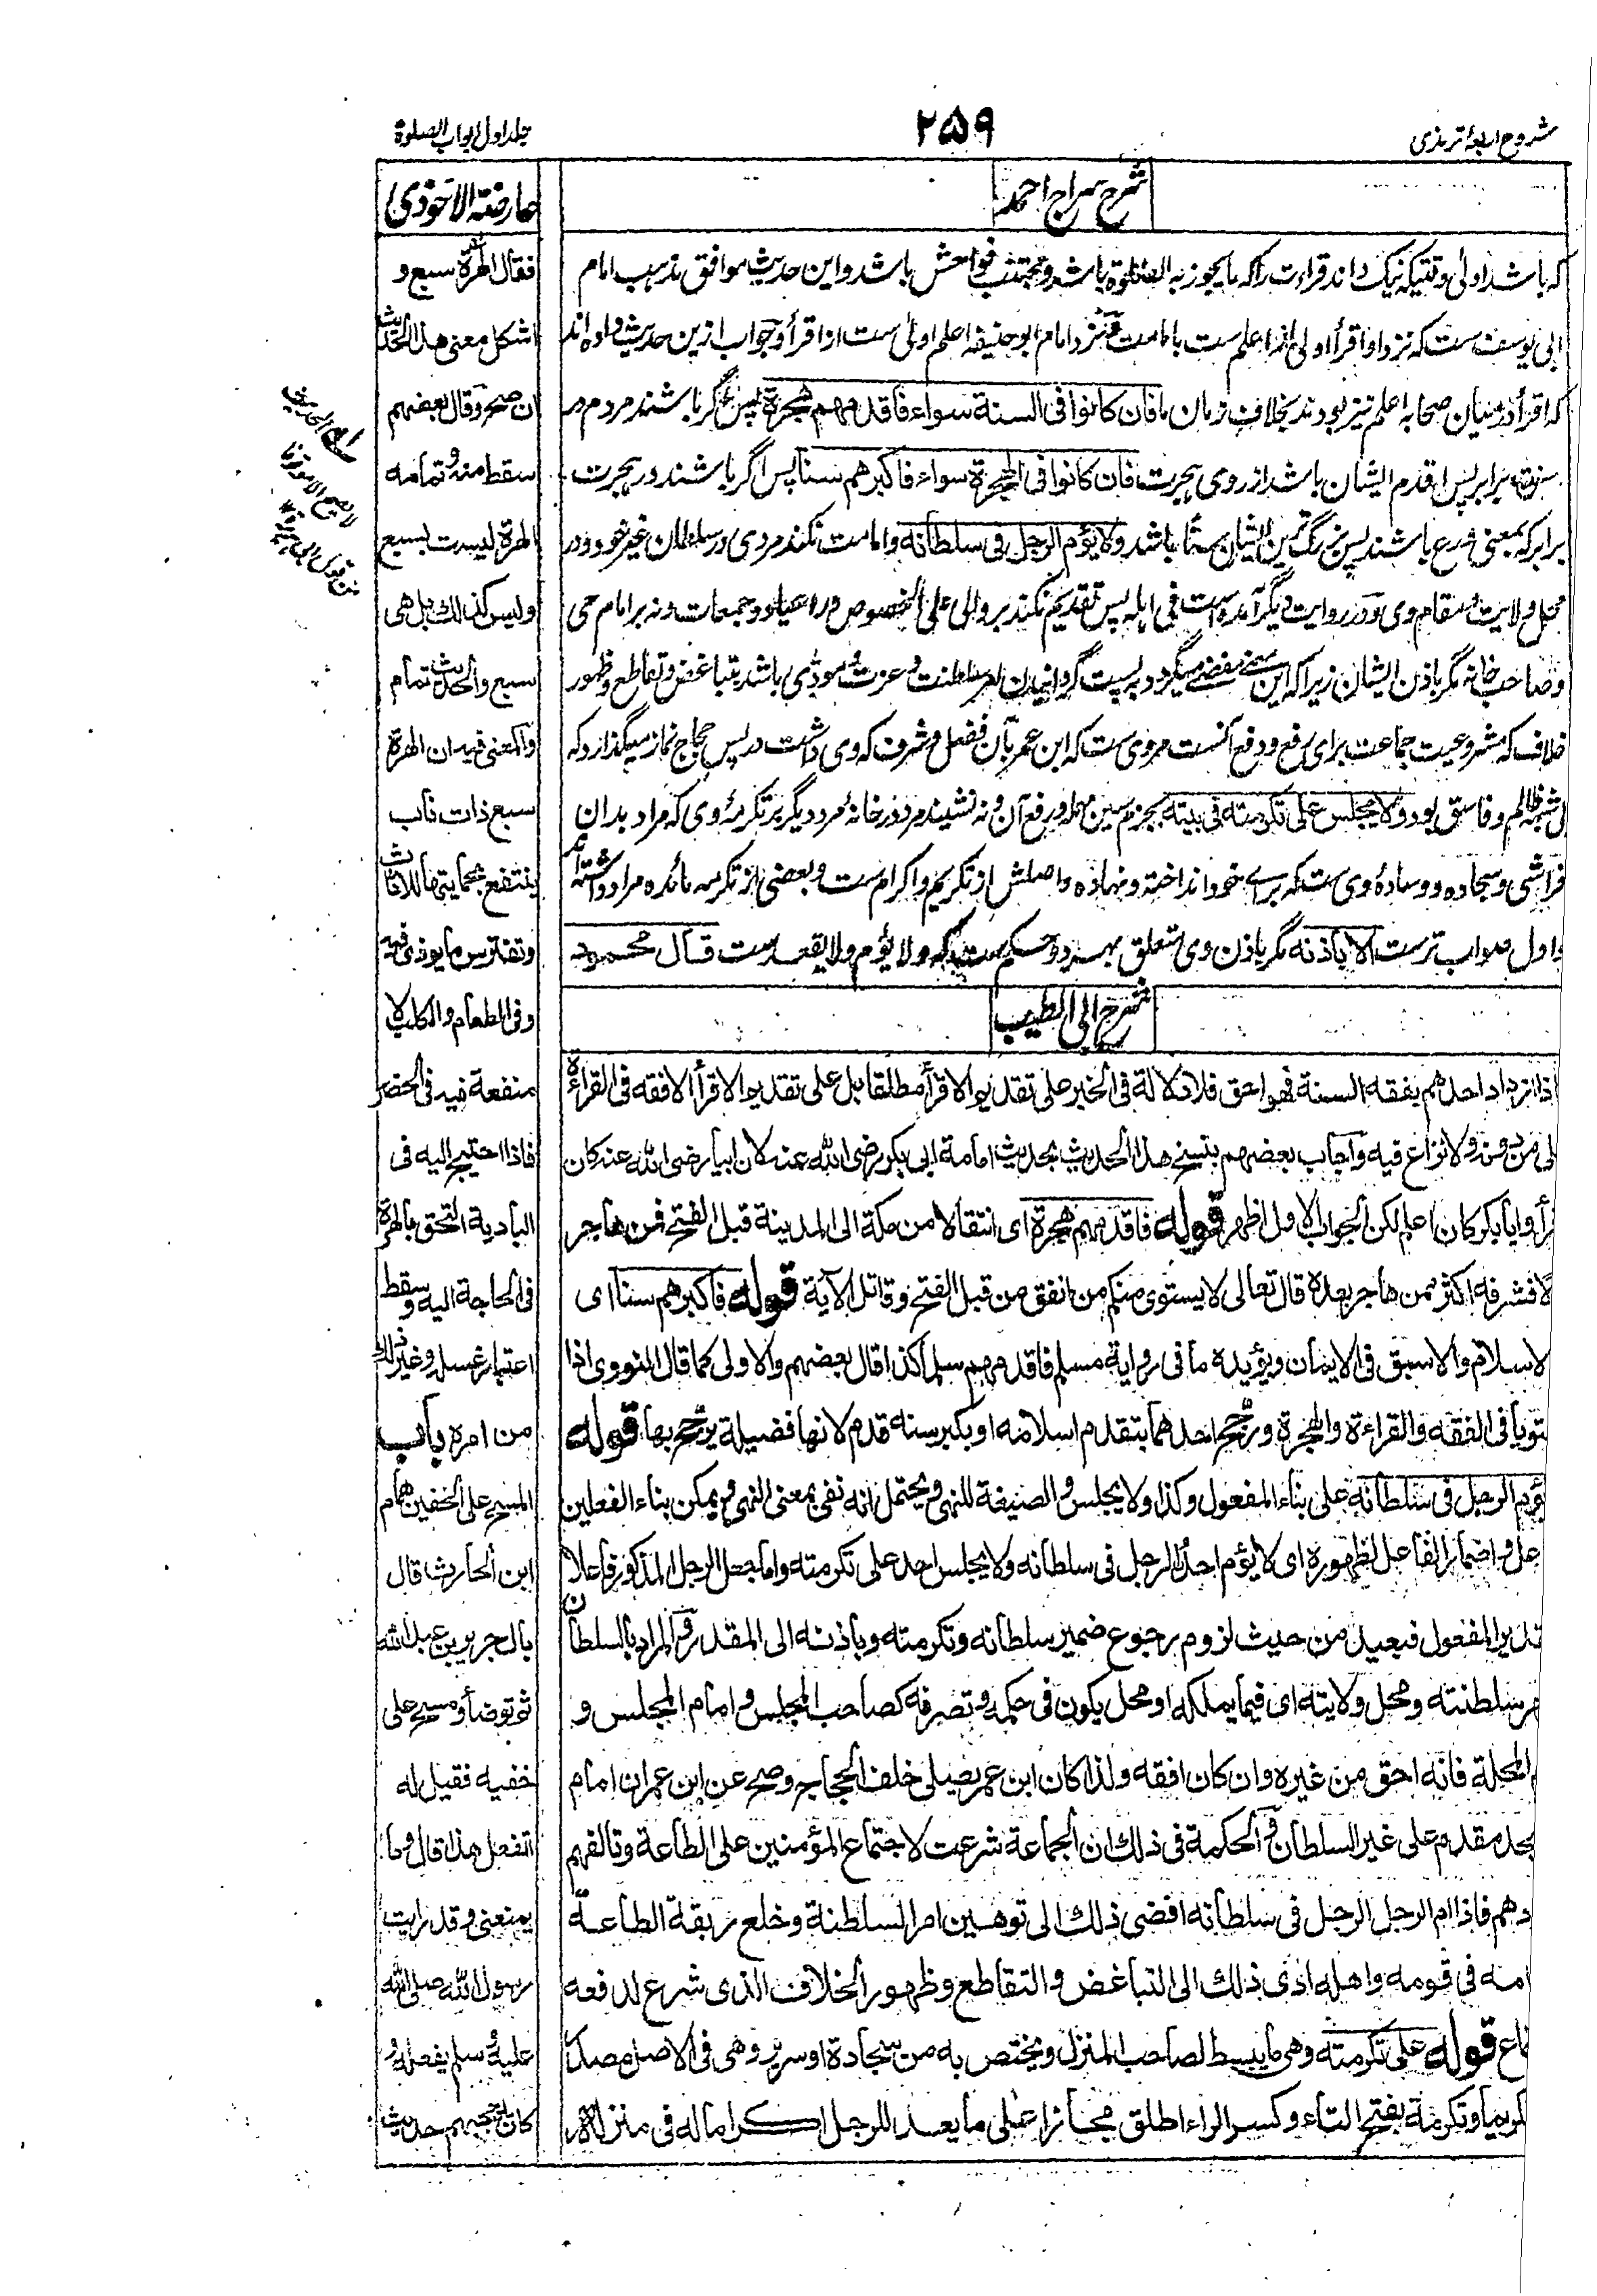 شروح اربعۀ ترمذی
۲۵۹
جلد اول ابواب الصلوة
شرح سراج احمد
که باشد اولی وقتیکه نیک داند قراءت را که ما یجوز به الصلوة باشد و مجتنب فواحش باشد و این حدیث موافق مذهب امام
ابی یوسف ست که نزد او اقرأ اولی اند از اعلم ست بامامت و نزد امام ابوحنیفه اعلم اولی ست از اقرأ و جواب ازین حدیث داده اند
که اقرأ در میان صحابه اعلم نیز بودند بخلاف زمان ما فان کانوا فی السنة سواء فاقدمهم هجرة پس اگر باشند مردم در
سنت برابر پس اقدم ایشان باشد از روی هجرت فان کانوا فی الهجرة سواء فاکبرهم سنا پس اگر باشند در هجرت
برابر که بمعنی ورع باشند پس بزرگ ترین ایشان بسنا باشد ولا یؤم الرجل فی سلطانه و امامت نکند مردی در سلطان غیر خود و در
محل ولایت و مقام وی و در روایت دیگر آمده است فی اهله پس تقدیم نکند بر والی علی الخصوص در اعیاد و جمعات و نه بر امام حی
و صاحب خانه مگر باذن ایشان زیرا که این معنی مفضی میگردد بر پست گردانیدن امر سلطنت و عزت و مودی باشد بتباغض و تقاطع و ظهور
خلاف که مشروعیت جماعت برای رفع و دفع آنست مروی ست که ابن عمر بآن فضل و شرف که وی داشت در پس حجاج نماز میگذارد که
بی شبه ظالم و فاسق بود ولا یجلس علی تکرمته فی بیته بجزم سین مهمله و رفع آن و نه نشیند مرد در خانۀ مرد دیگر بر تکرمۀ وی که مراد بدان
فراشی و سجاده و وسادۀ وی ست که برای خود انداخته و نهاده و اصلش از تکریم و اکرام ست و بعضی از تکرمه مائده مراد داشته اند
و اول صواب ترست الا باذنه مگر باذن وی متعلق بهر دو حکم ست که ولا یؤم ولا یقعد ست قال محمود
شرح ابی الطیب
اذا ازداد احدهم بفقه السنة فهو احق فلا دلالة فی الخبر علی تقدیم الاقرأ مطلقا بل علی تقدیم الاقرأ الافقه فی القراءة
علی من دونه ولا نزاع فیه واجاب بعضهم بنسخ هذا الحدیث بحدیث امامة ابی بکر رضی الله عنه لان ابیا رضی الله عنه کان
اقرأ وابا بکر کان اعلم لکن الجواب الاول اظهر قوله فاقدمهم هجرة ای انتقالا من مکة الی المدینة قبل الفتح فمن هاجر
اولا فشرفه اکثر ممن هاجر بعده قال تعالی لا یستوی منکم من انفق من قبل الفتح وقاتل الآیة قوله فاکبرهم سنا ای
الاسلام والاسبق فی الایمان ویؤیده ما فی روایة مسلم فاقدمهم سلما کذا قال بعضهم والاولی کما قال النووی اذا
استویا فی الفقه والقراءة والهجرة ورجح احدهما بتقدم اسلامه او بکبر سنه قدم لانها فضیلة یرجح بها قوله
لا یؤم الرجل فی سلطانه علی بناء المفعول وکذا ولا یجلس والصیغة للنهی ویحتمل انه نفی بمعنی النهی ویمکن بناء الفعلین
للفاعل واضمار الفاعل لظهوره ای لا یؤم احد الرجل فی سلطانه ولا یجلس احد علی تکرمته واما جعل الرجل المذکور فاعلا
وتقدیر المفعول فبعید من حیث لزوم رجوع ضمیر سلطانه وتکرمته وباذنه الی المقدر والمراد بالسلطان
سلطنته ومحل ولایته ای فیما یملکه او محل یکون فی حکمه وتصرفه کصاحب المجلس وامام المجلس و
المحلة فانه احق من غیره وان کان افقه ولذا کان ابن عمر یصلی خلف الحجاج وصح عن ابن عمر ان امام
المسجد مقدم علی غیر السلطان والحکمة فی ذلک ان الجماعة شرعت لاجتماع المؤمنین علی الطاعة وتالفهم
وتوادهم فاذا ام الرجل الرجل فی سلطانه افضی ذلک الی توهین امر السلطنة وخلع ربقة الطاعة
امه فی قومه واهله ادی ذلک الی التباغض والتقاطع وظهور الخلاف الذی شرع لدفعه
الاجتماع قوله علی تکرمته وهی ما یبسط لصاحب المنزل ویختص به من سجادة او سریر وهی فی الاصل مصدر
تکریما وتکرمة بفتح التاء وکسر الراء اطلق مجازا علی ما یعد للرجل اکراما له فی منزله
عارضة الاحوذی
فقال الهرة سبع و
اشکل معنی هذا الحدیث
ان صح وقال بعضهم
سقط منه وتمامه
الهرة لیست بسبع
ولیس کذلک بل هی
سبع والحدیث تمام
والمعنی فیه ان الهرة
سبع ذات ناب
ینتفع بحمایتها للاثاث
وتفترس ما یوذی فیه
وفی الطعام والکلب لا
منفعة فیه فی الحضر
فاذا احتیج الیه فی
البادیة التحق بالهرة
فی الحاجة الیه وسقط
اعتبار غسله وغیر ذلک
من امره باب
المسح علی الخفین همام
ابن الحارث قال
بال جریر بن عبد الله
ثم توضأ ومسح علی
خفیه فقیل له
اتفعل هذا قال وما
یمنعنی وقد رایت
رسول الله صلی الله
علیه وسلم یفعله و
کان یعجبهم حدیث